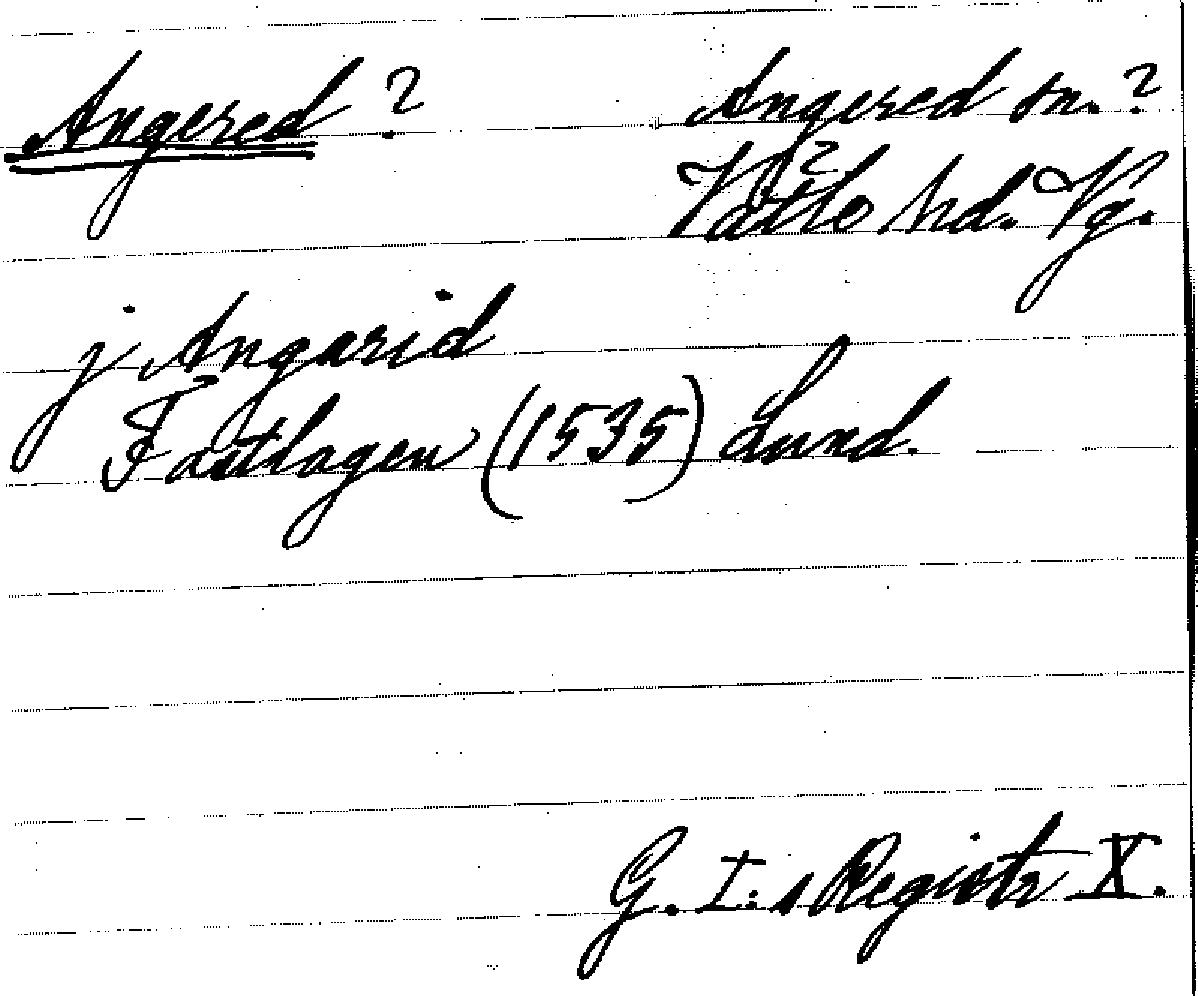 Angered ?
Angered sn. ?
Vättle hd. Vg.
j Angarid
Fastlagen (1535) Lund.
G. I:s Registr X.